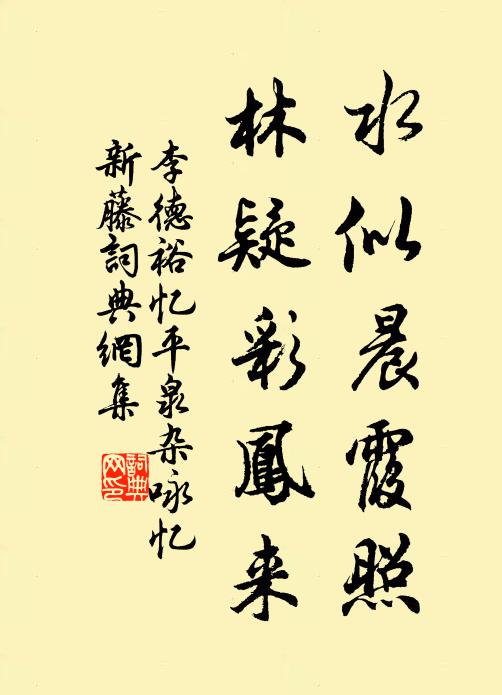 水似晨霞照
林疑彩鳳来
李德裕忆平泉杂咏忆
新藤詞典網集
詞典
网印